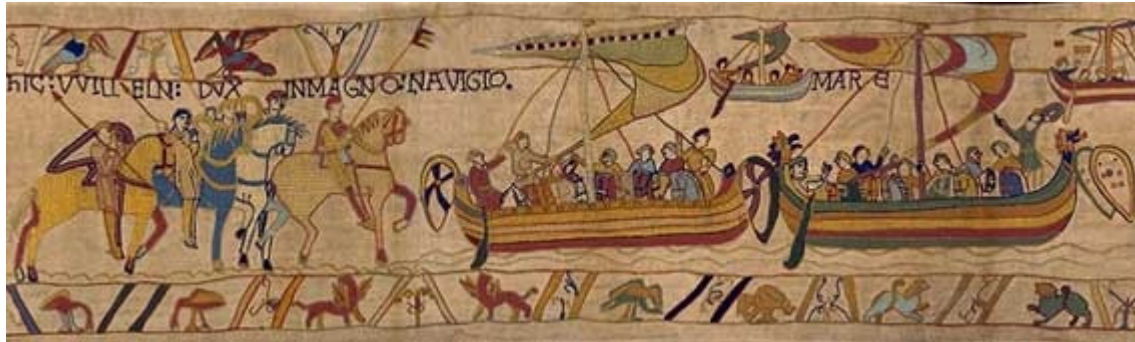 HIC: VVILLELM: DVX IN MAGNO: NAVIGIO.
MARE